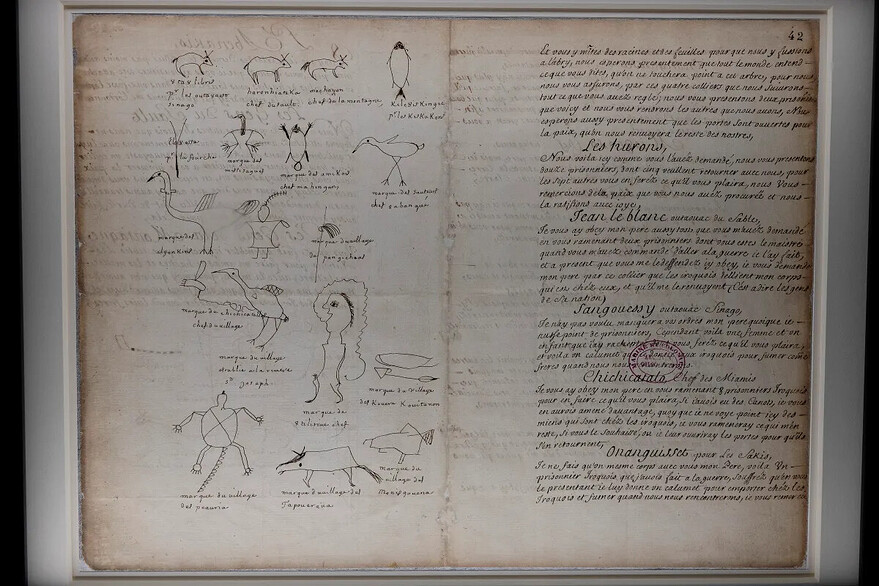 vravlibois
pr les outavaois
sinago
harouhiateka
chef du sault
mechayon
chef de la montagne
Kileouiskingie
pr les KisKaKons
pr la fourche
marque des
missisagues
marque des amikois
chef mahingan
marque des sauteurs
chef 8abangué
marque des
algonKins
marque du village
de pangichea
marque du chichicatalo
chef du village
marque du village
etablie a la riviere
St joseph
marque de
8nilimac chef
marque du village
des Kouera Kouitanon
marque du village
des peouria
marque du village des
Tapouaroua
marque du
village des
Monisgouena
42
Et vous y mîtes des racines et des feuilles pour que nous y fussions
a l'abry, nous esperons presentement que tout le monde entend
ce que vous dites, qu'on ne touchera point a cet arbre, pour nous
nous vous assurons, par ces quatre colliers que nous suiurons
tout ce que vous auez reglé; nous vous presentons deux prisonniers
que voicy et nous vous rendrons les autres que nous auons, Nous
esperons aussy presentement que les portes sont ouvertes pour
la paix, qu'on nous renvoyera le reste des nostres,
Les hurons,
Nous voila icy comme vous l'auez demandé, nous vous presentons
douze prisonniers, dont cinq veullent retourner auec nous, pour
les sept autres vous en ferez ce qu'il vous plaira, nous Vous
remercions de la paix que vous nous auez procurée et nous
la ratifions auec joye,
Jean le blanc outaouac du Sable,
Je vous ay obey mon pere aussytost que vous m'auez demandé
en vous ramenant deux prisonniers dont vous estes le maistre
quand vous m'auez commandé d'aller a la guerre ie l'ay fait,
et a present que vous me le deffendez j'y obey, ie vous demande
mon pere par ce collier que les iroquois deslient mon corps
qui est chez eux, et qu'il me le renuoyent (C'est a dire les gens
de sa nation)
Jangouessy outaouac Sinago,
Je n'ay pas voulu manquer a vos ordres mon pere quoique ie
n'usse point de prisonniers, Cependant voila vne femme et vn
enfant que j'ay rachepté vous ferez ce qu'il vous plaira,
et voila vn calumet que ie donne aux iroquois pour fumer come
freres quand nous nous
Chichicatalo Chef des Miamis
Je vous ay obey mon pere en vous ramenant 8 prisonniers Iroquois
pour en faire ce qu'il vous plaira, si j'auois eu des Canots, ie vous
en aurois amené dauantage, quoy que ie ne voye point icy des
miens qui sont chez les iroquois, ie vous rameneray ce qui m'en
reste, si vous le souhaitez, ou ie leur ouuriray les portes pour qu'ils
s'en retournent,
Onanguisset pour les Sakis,
Je ne fais qu'un mesme corps auec vous mon Pere, voila Vn
prisonnier Iroquois que j'auois fait a la guerre, souffrez qu'en vous
le presentant ie luy donne vn calumet pour emporter chez les
Iroquois et fumer quand nous nous rencontrerons, ie vous remercie